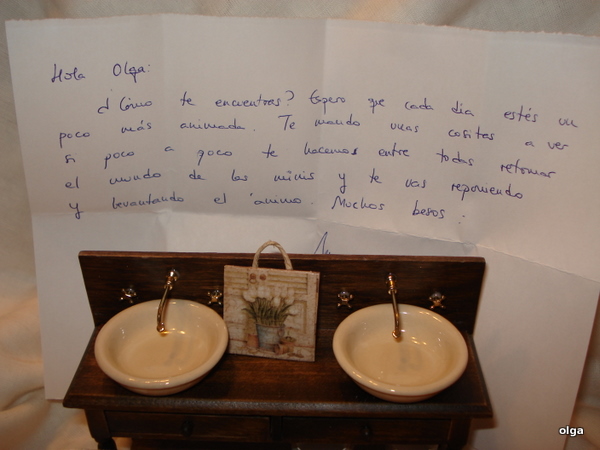 Hola Olga:
¿Cómo te encuentras? Espero que cada día estés un
poco más animada. Te mando unas cositas a ver
si poco a poco te hacemos entre todas retomar
el mundo de las minis y te vas reponiendo
y levantando el ánimo. Muchos besos.
olga